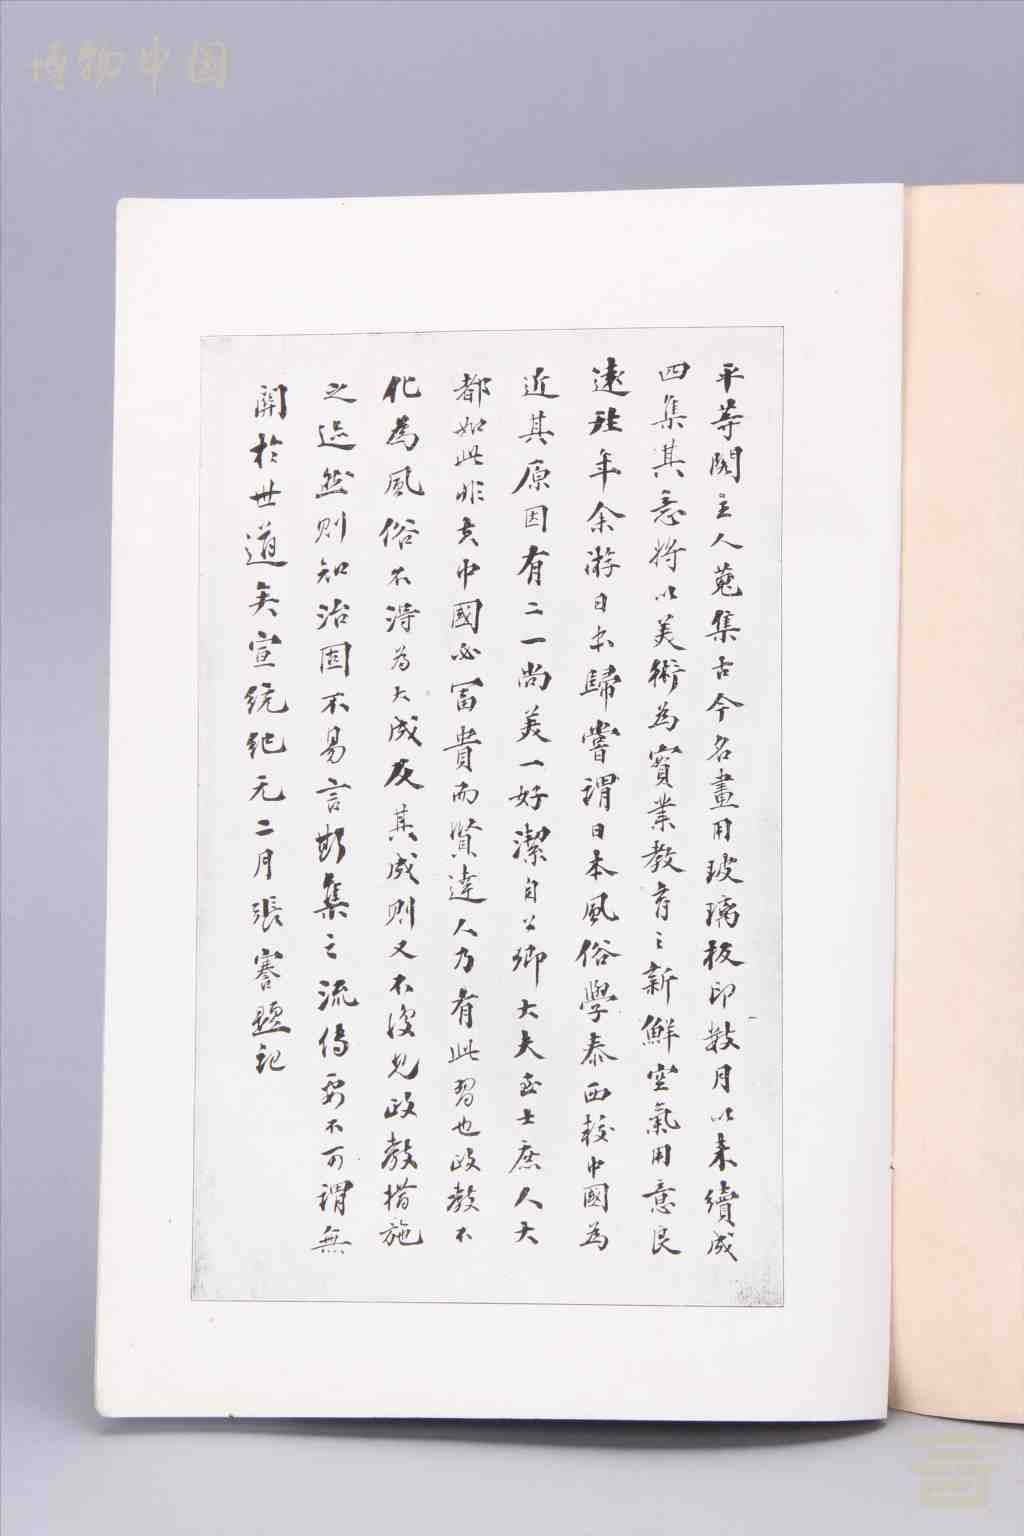 博物中国
平等閣主人蒐集古今名畫用玻璃板印數月以来續成
四集其意將以美術為實業教育之新鮮空氣用意良
遠往年余游日本歸嘗謂日本風俗學泰西較中國為
近其原因有二一尚美一好潔自公卿大夫至士庶人大
都如此非夫中國必富貴而賢達人乃有此習也政教不
化為風俗不得為大成及其成則又不復見政教措施
之迹然則知治固不易言斯集之流傳要不可謂無
關於世道矣宣統紀元二月張謇題記